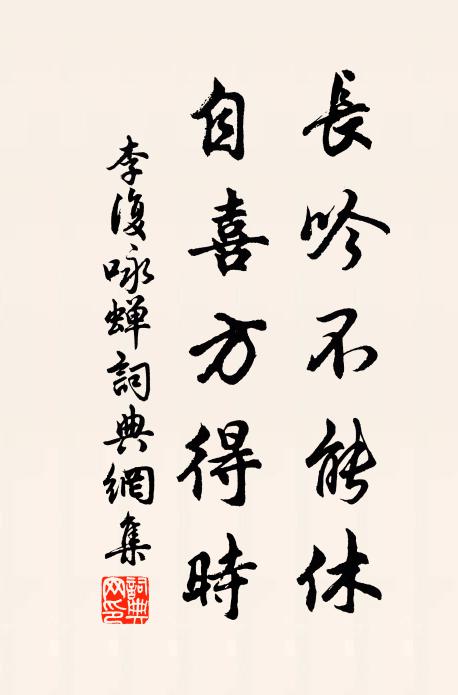 長吟不能休
自喜方得時
李復咏蝉詞典網集
詞典
网印